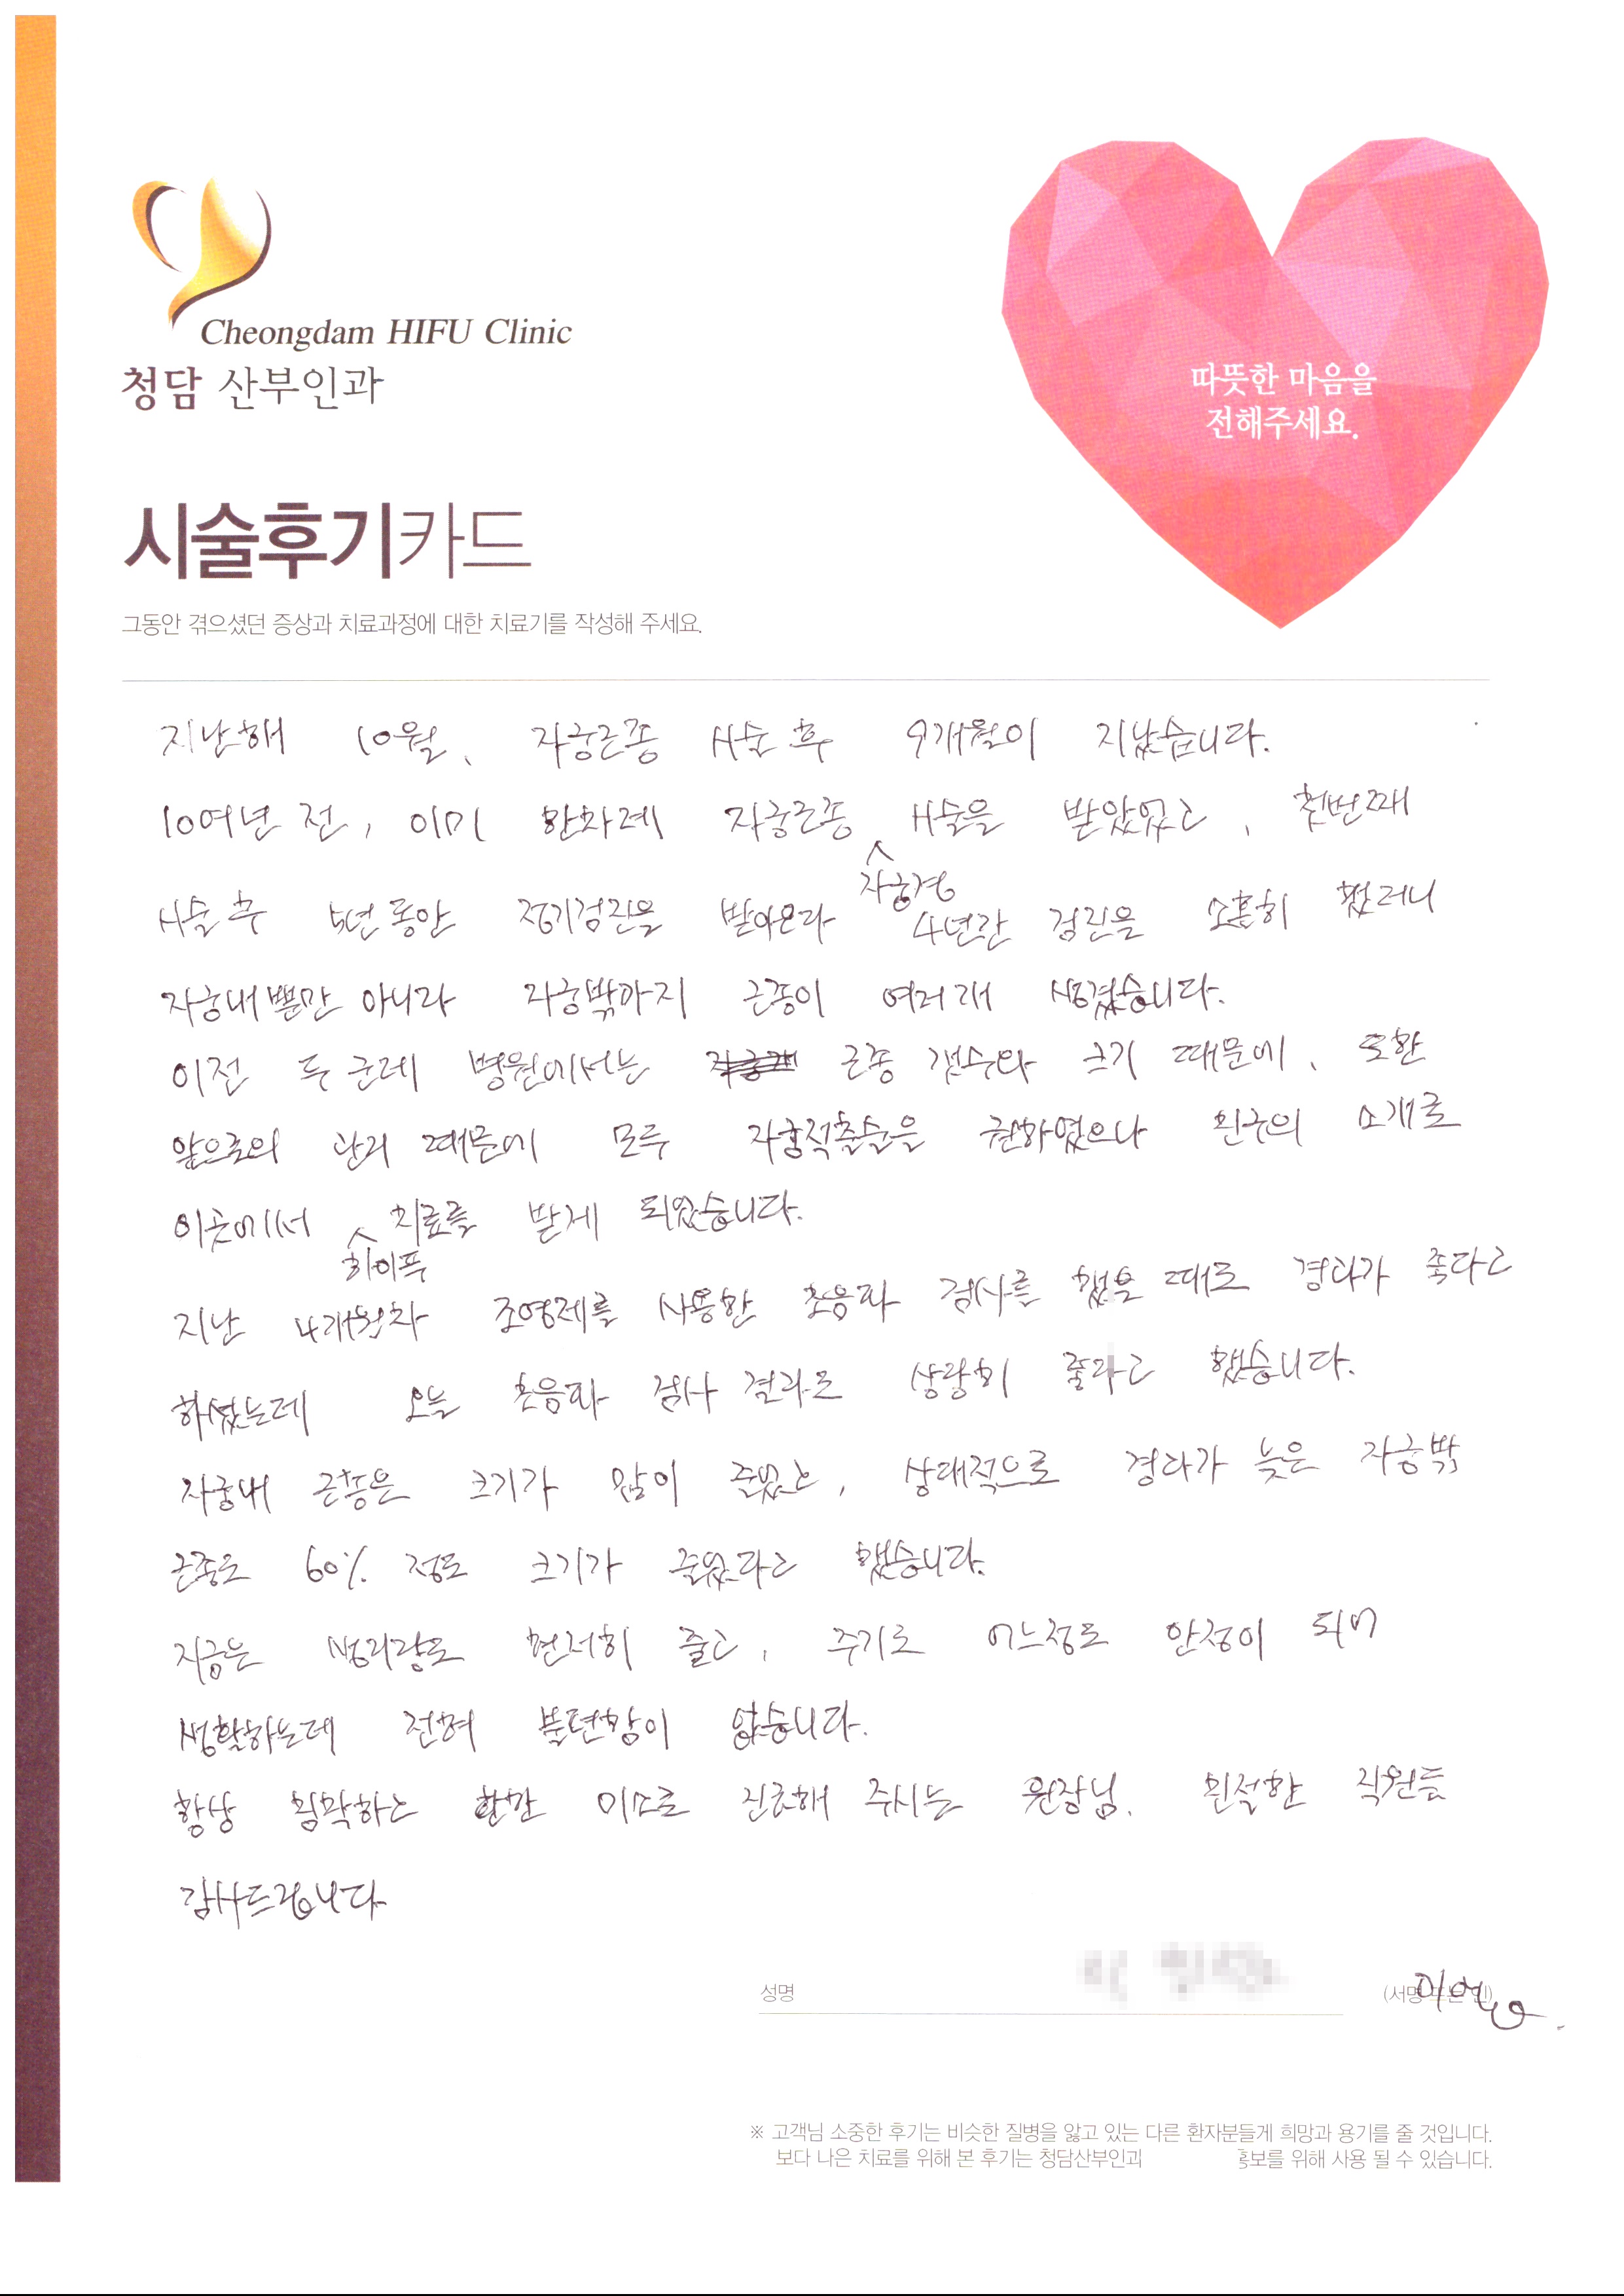 Cheongdam HIFU Clinic
청담 산부인과
따뜻한 마음을
전해주세요.
시술후기카드
그동안 겪으셨던 증상과 치료과정에 대한 치료기를 작성해 주세요.
지난해 10월, 자궁근종 시술 후 9개월이 지났습니다.
10여년 전, 이미 한차례 자궁근종 시술을 받았었고, 첫번째
자궁경
시술 후 5년 동안 정기검진을 받아오다 4년간 검진을 소홀히 했더니
자궁내 뿐만 아니라 자궁밖까지 근종이 여러개 생겼습니다.
이전 두 군데 병원에서는 근종 갯수와 크기 때문에, 또한
앞으로의 관리 때문에 모두 자궁적출술을 권하였으나 친구의 소개로
이곳에서 치료를 받게 되었습니다.
하이푸
지난 4개월차 조영제를 사용한 초음파 검사를 했을 때도 경과가 좋다고
하셨는데 오늘 초음파 검사 결과도 상당히 좋다고 했습니다.
자궁내 근종은 크기가 많이 줄었고, 상대적으로 경과가 늦은 자궁밖
근종도 60% 정도 크기가 줄었다고 했습니다.
지금은 생리량도 현저히 줄고, 주기도 어느정도 안정이 되어
생활하는데 전혀 불편함이 없습니다.
항상 침착하고 환한 미소로 진료해 주시는 원장님, 친절한 직원들
감사드립니다
성명
(서명 또는 인)
※ 고객님 소중한 후기는 비슷한 질병을 앓고 있는 다른 환자분들게 희망과 용기를 줄 것입니다.
보다 나은 치료를 위해 본 후기는 청담산부인과 홍보를 위해 사용 될 수 있습니다.